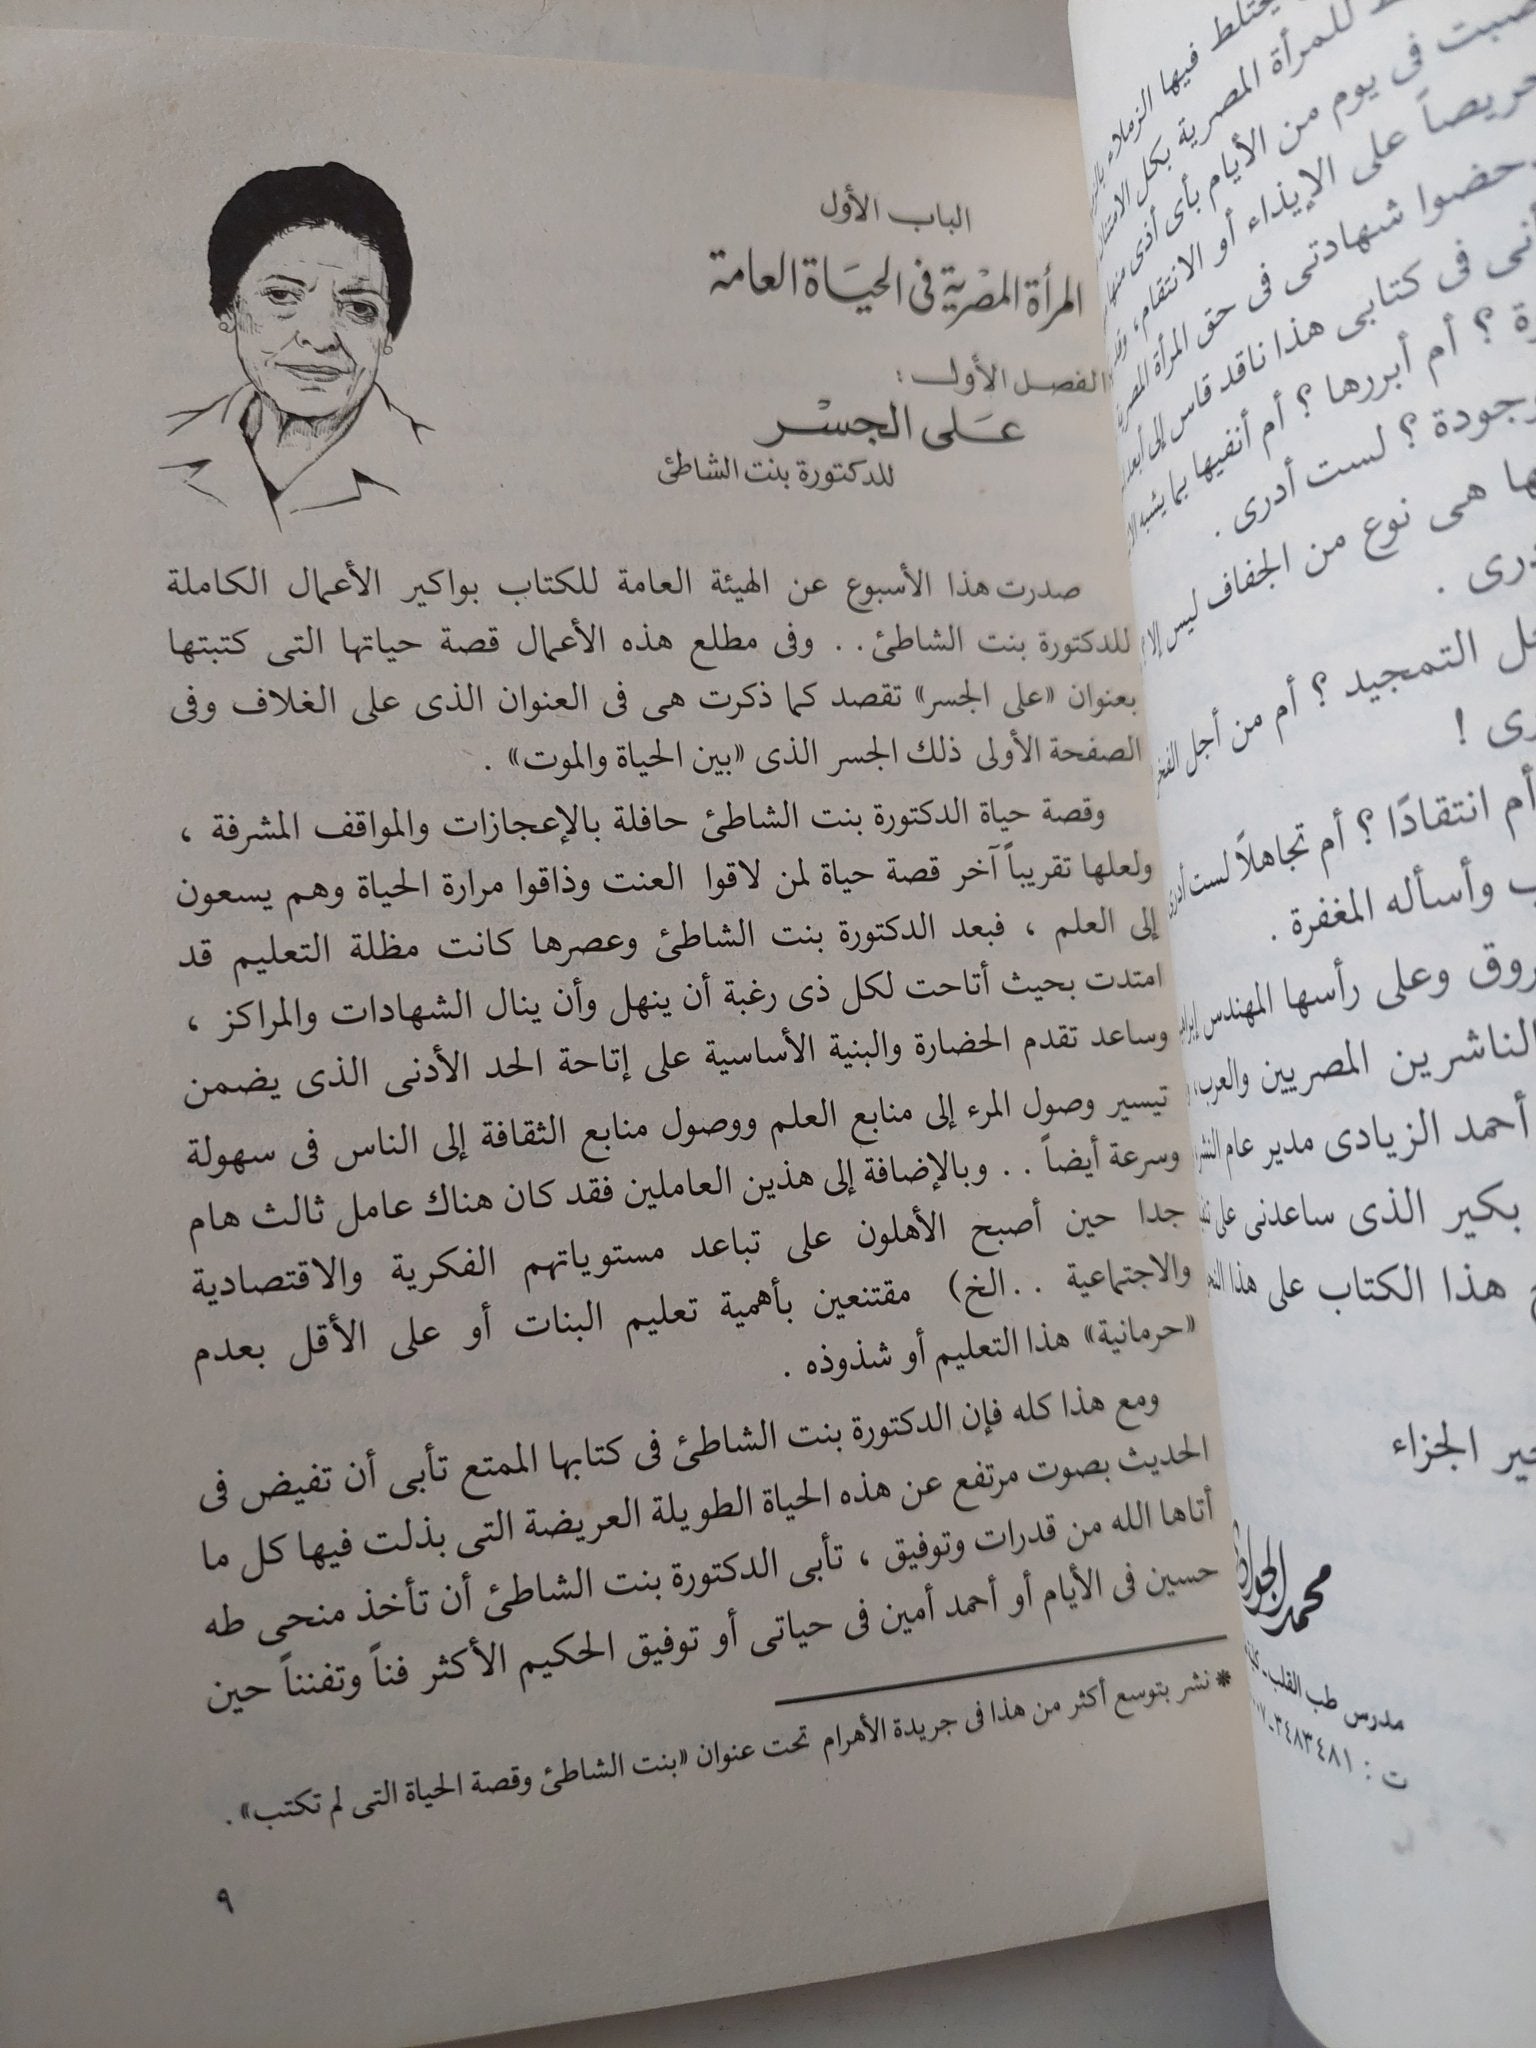 الباب الأول
المرأة المصرية فى الحياة العامة
الفصل الأول :
على الجسر
للدكتورة بنت الشاطئ
صدرت هذا الأسبوع عن الهيئة العامة للكتاب بواكير الأعمال الكاملة
للدكتورة بنت الشاطئ . . وفى مطلع هذه الأعمال قصة حياتها التى كتبتها
بعنوان «على الجسر» تقصد كما ذكرت هى فى العنوان الذى على الغلاف وفى
الصفحة الأولى ذلك الجسر الذى «بين الحياة والموت» .
وقصة حياة الدكتورة بنت الشاطئ حافلة بالإعجازات والمواقف المشرفة ،
ولعلها تقريباً آخر قصة حياة لمن لاقوا العنت وذاقوا مرارة الحياة وهم يسعون
إلى العلم ، فبعد الدكتورة بنت الشاطئ وعصرها كانت مظلة التعليم قد
امتدت بحيث أتاحت لكل ذى رغبة أن ينهل وأن ينال الشهادات والمراكز ،
وساعد تقدم الحضارة والبنية الأساسية على إتاحة الحد الأدنى الذى يضمن
تيسير وصول المرء إلى منابع العلم ووصول منابع الثقافة إلى الناس فى سهولة
وسرعة أيضاً . . وبالإضافة إلى هذين العاملين فقد كان هناك عامل ثالث هام
جدا حين أصبح الأهلون على تباعد مستوياتهم الفكرية والاقتصادية
والاجتماعية . . الخ) مقتنعين بأهمية تعليم البنات أو على الأقل بعدم
«حرمانية» هذا التعليم أو شذوذه .
ومع هذا كله فإن الدكتورة بنت الشاطئ فى كتابها الممتع تأبى أن تفيض فى
الحديث بصوت مرتفع عن هذه الحياة الطويلة العريضة التى بذلت فيها كل ما
أتاها الله من قدرات وتوفيق ، تأبى الدكتورة بنت الشاطئ أن تأخذ منحى طه
حسين فى الأيام أو أحمد أمين فى حياتى أو توفيق الحكيم الأكثر فناً وتفنناً حين
* نشر بتوسع أكثر من هذا فى جريدة الأهرام تحت عنوان «بنت الشاطئ وقصة الحياة التى لم تكتب» .
٩
يختلط فيها الزملاء
للمرأة المصرية بكل
فى يوم من الأيام بأى أذى
حريصاً على الإيذاء أو الانتقام ،
شهادتى فى حق المرأة
فى كتابى هذا ناقد قاس إلى
؟ أم أبررها ؟ أم أنفيها بما يشبه
؟ لست أدرى .
هى نوع من الجفاف ليس
.
التمجيد ؟ أم من أجل
!
أم انتقادًا ؟ أم تجاهلاً لست
وأسأله المغفرة .
وعلى رأسها المهندس
الناشرين المصريين والعرب
أحمد الزيادى مدير عام
بكير الذى ساعدنى على
هذا الكتاب على هذا
الجزاء
محمد
مدرس طب القلب
ت : ٣٤٨٣٤٨١